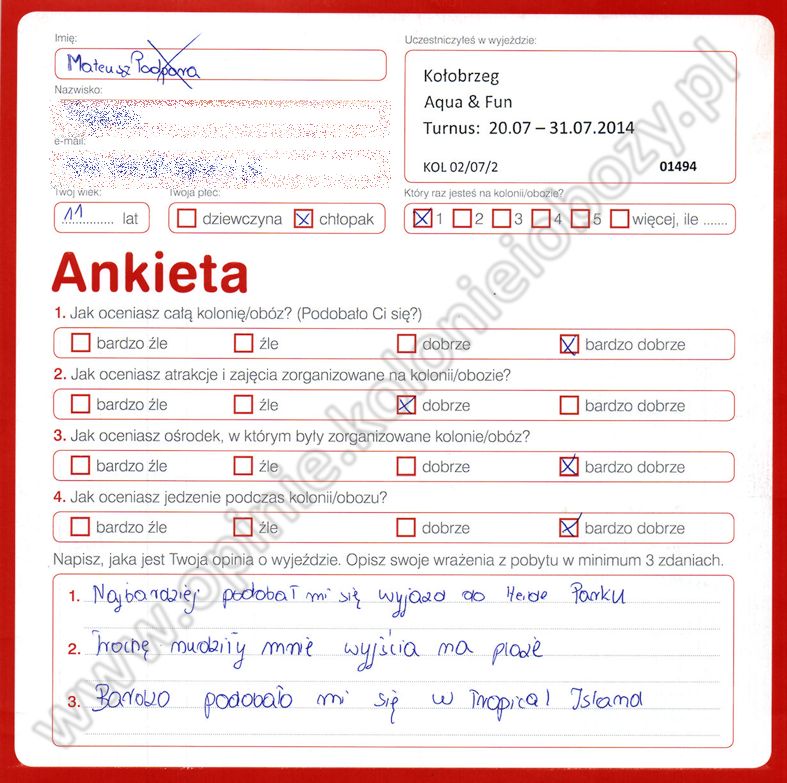 Imię:
Mateusz Podpora
Nazwisko:
e-mail:
Twój wiek:
11 lat
Twoja płeć:
dziewczyna chłopak
Uczestniczyłeś w wyjeździe:
Kołobrzeg
Aqua & Fun
Turnus: 20.07 – 31.07.2014
KOL 02/07/2 01494
Który raz jesteś na kolonii/obozie?
1 2 3 4 5 więcej, ile .......
Ankieta
1. Jak oceniasz całą kolonię/obóz? (Podobało Ci się?)
bardzo źle źle dobrze bardzo dobrze
2. Jak oceniasz atrakcje i zajęcia zorganizowane na kolonii/obozie?
bardzo źle źle dobrze bardzo dobrze
3. Jak oceniasz ośrodek, w którym były zorganizowane kolonie/obóz?
bardzo źle źle dobrze bardzo dobrze
4. Jak oceniasz jedzenie podczas kolonii/obozu?
bardzo źle źle dobrze bardzo dobrze
Napisz, jaka jest Twoja opinia o wyjeździe. Opisz swoje wrażenia z pobytu w minimum 3 zdaniach.
1. Najbardziej podobał mi się wyjazd do Heide Parku
2. Trochę nudziły mnie wyjścia na plażę
3. Bardzo podobało mi się w Tropical Island
www.opinie.kolonieiobozy.pl